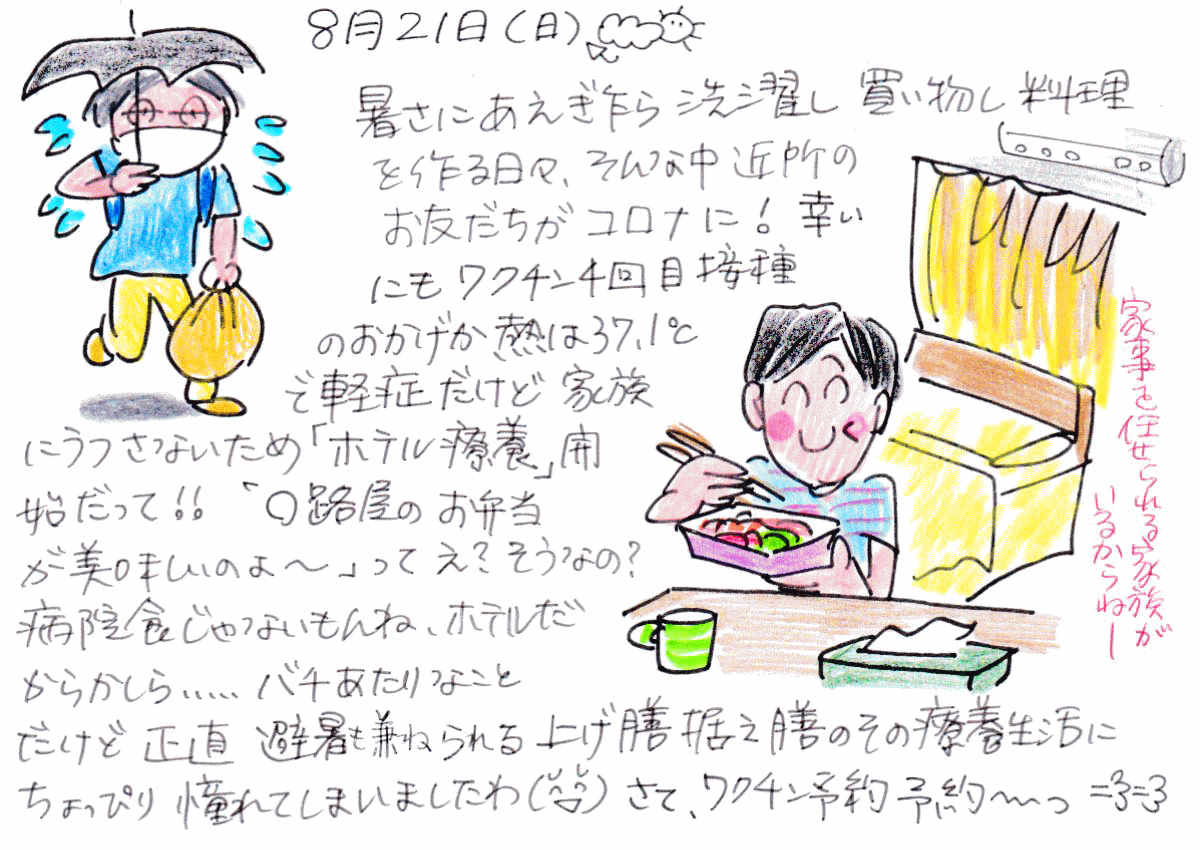 8月21日(日)
暑さにあえぎ乍ら 洗濯し 買い物し 料理
を作る日々、そんな中 近所の
お友だちが コロナに! 幸い
にも ワクチン4回目接種
のおかげか、熱は37.1℃
で軽症だけど 家族
にうつさないため「ホテル療養」開
始だって!! 「〇路屋の お弁当
が美味しいのよ〜」って え?そうなの?
病院食じゃないもんね、ホテルだ
からかしら...... バチあたりなこと
だけど 正直 避暑も兼ねられる 上げ膳 据え膳のその療養生活に
ちょっぴり 憧れてしまいましたわ(^^) さて、ワクチン予約 予約〜〜っ =3=3
家事を任せられる家族が
いるからねー